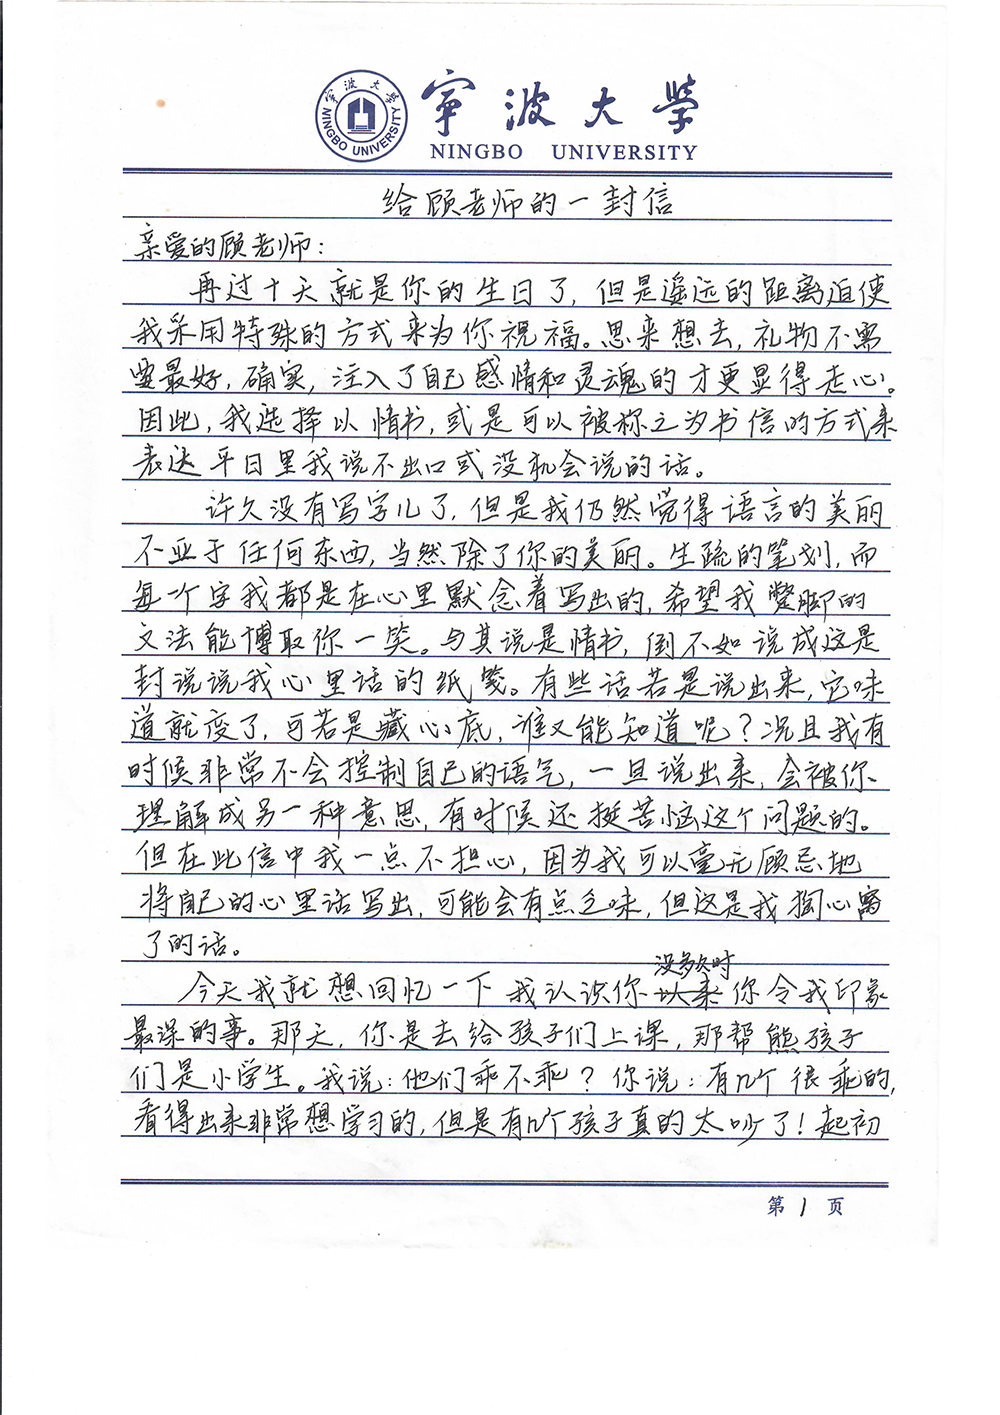 宁波大学
NINGBO UNIVERSITY
宁波大学
NINGBO UNIVERSITY
给顾老师的一封信
亲爱的顾老师：
再过十天就是你的生日了，但是遥远的距离迫使
我采用特殊的方式来为你祝福。思来想去，礼物不需
要最好，确实，注入了自己感情和灵魂的才更显得走心。
因此，我选择以情书，或是可以被称之为书信的方式来
表达平日里我说不出口或没机会说的话。
许久没有写字儿了，但是我仍然觉得语言的美丽
不亚于任何东西，当然除了你的美丽。生疏的笔划，而
每一个字我都是在心里默念着写出的，希望我蹩脚的
文法能博取你一笑。与其说是情书，倒不如说成这是
封说说我心里话的纸笺。有些话若是说出来，它味
道就变了，可若是藏心底，谁又能知道呢？况且我有
时候非常不会控制自己的语气，一旦说出来，会被你
理解成另一种意思，有时候还挺苦恼这个问题的。
但在此信中我一点不担心，因为我可以毫无顾忌地
将自己的心里话写出，可能会有点乏味，但这是我掏心窝
了的话。
没多久时
今天我就想回忆一下我认识你以来你令我印象
最深的事。那天，你是去给孩子们上课，那帮熊孩子
们是小学生。我说：他们乖不乖？你说：有几个很乖的，
看得出来非常想学习的，但是有几个孩子真的太吵了！起初
第1页